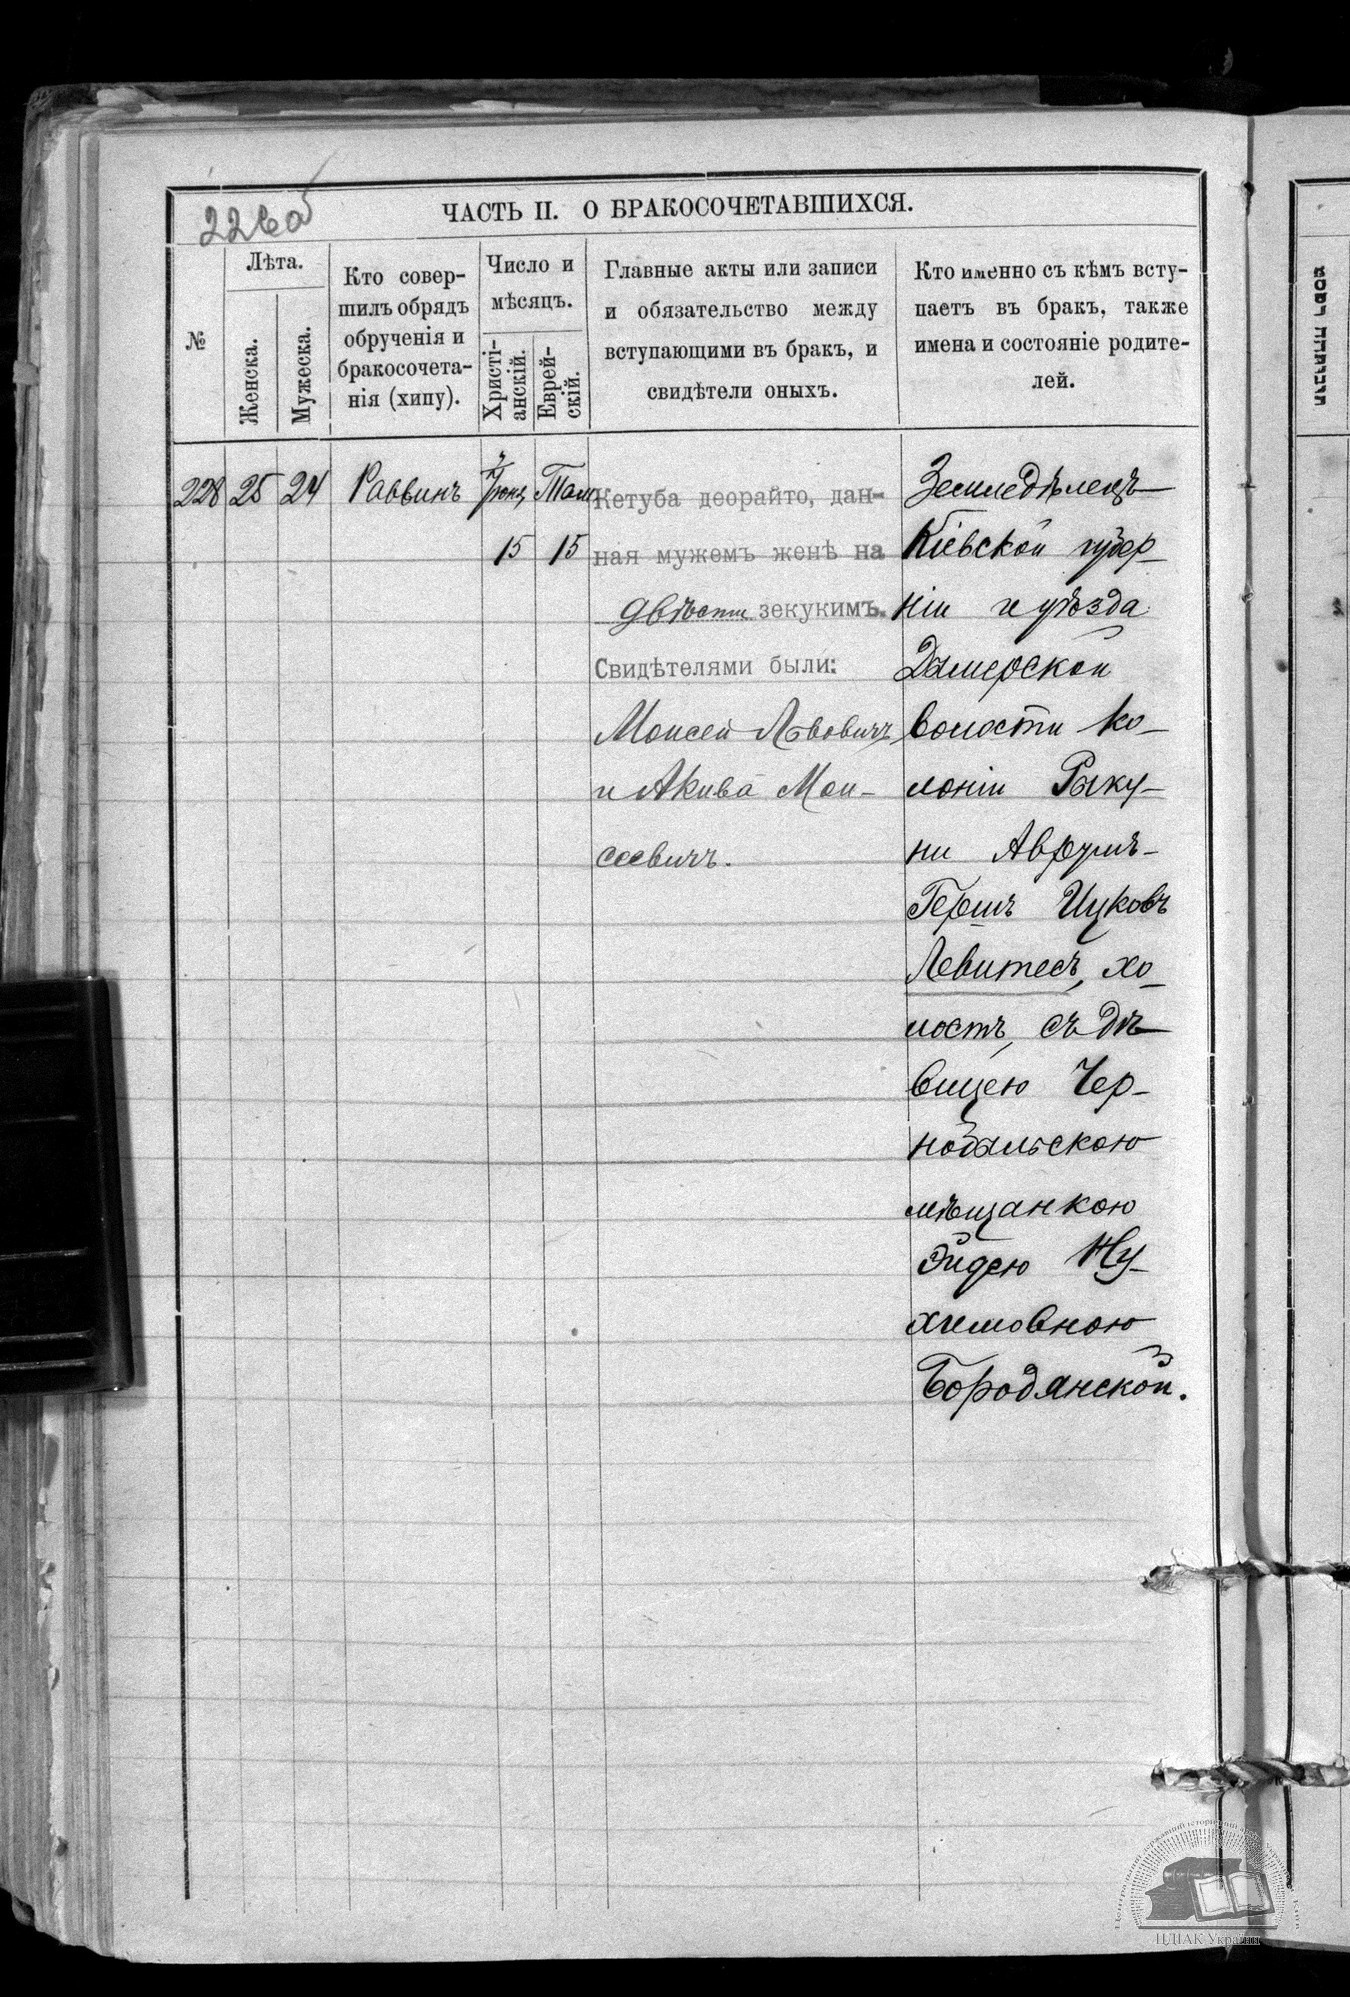 226об
ЧАСТЬ II. О БРАКОСОЧЕТАВШИХСЯ.
№
Лѣта.
Женска.
Мужеска.
Кто совер-
шилъ обрядъ
обрученія и
бракосочета-
нія (хипу).
Число и
мѣсяцъ.
Христі-
анскій.
Еврей-
скій.
Главные акты или записи
и обязательство между
вступающими въ бракъ, и
свидѣтели оныхъ.
Кто именно съ кѣмъ всту-
паетъ въ бракъ, также
имена и состояніе родите-
лей.
228 25 24 Раввинъ
15 15
Кетуба деорайто, дан-
ная мужемъ женѣ на
двѣсти зекукимъ.
Свидѣтелями были:
Моисей Львовичъ
и Акива Мои-
сеевичъ.
Земледѣлецъ
Кіевской губер-
ніи и уѣзда
Дымерской
волости ко-
лоніи Рыку-
ни Аврумъ-
Гершъ Ицковъ
Левитесъ, хо-
лостъ, съ дѣ-
вицею Чер-
нобыльскою
мѣщанкою
Эйдею Ну-
химовною
Бородянской.
ЦДІАК України